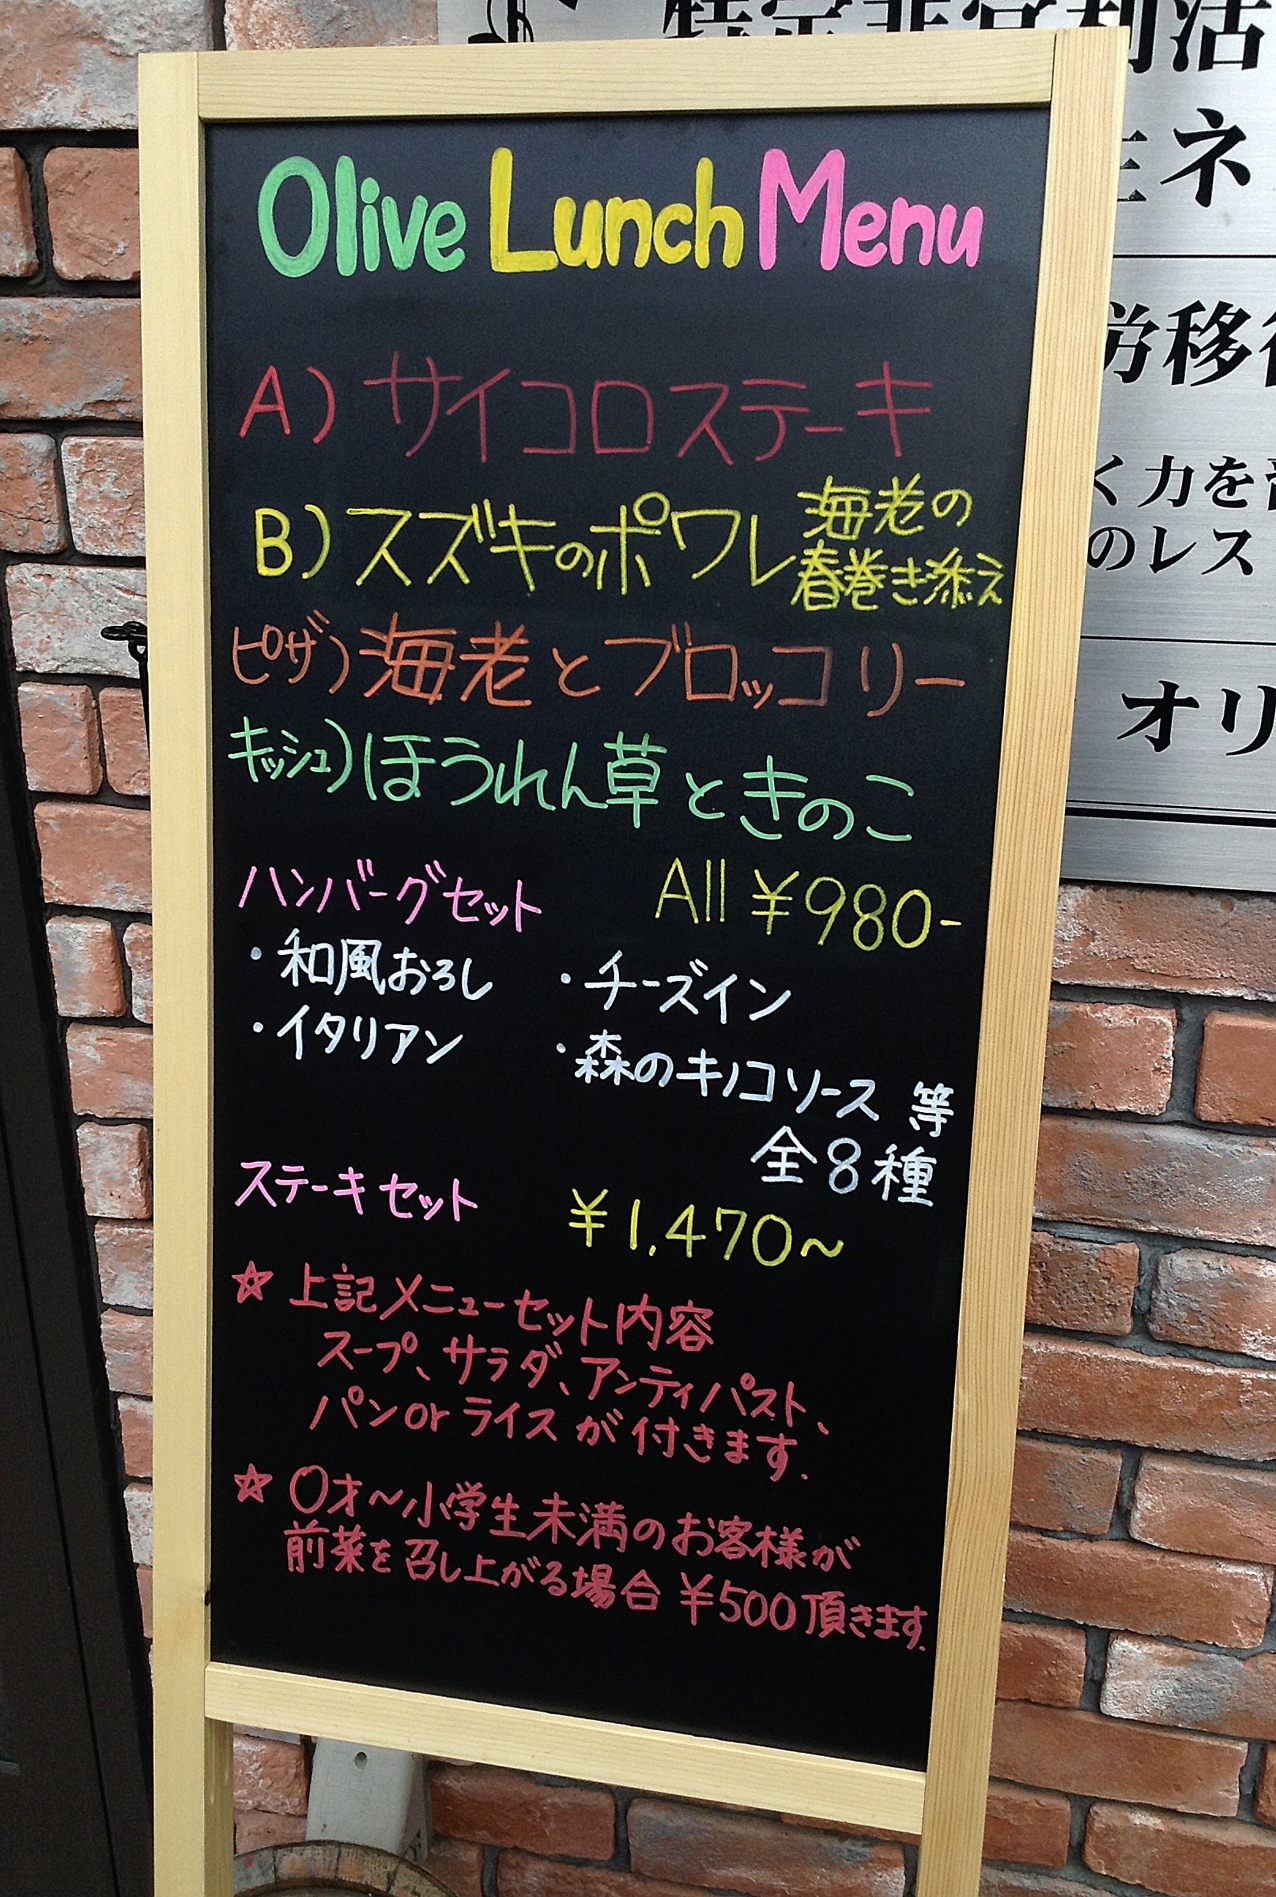 Olive Lunch Menu
A) サイコロステーキ
B) スズキのポワレ 海老の
春巻き添え
ピザ) 海老とブロッコリー
キッシュ) ほうれん草ときのこ
All ¥980-
ハンバーグセット
・和風おろし ・チーズイン
・イタリアン ・森のキノコソース 等
全8種
ステーキセット ¥1,470～
☆ 上記メニューセット内容
スープ、サラダ、アンティパスト、
パンorライスが付きます.
☆ 〇才～小学生未満のお客様が
前菜を召し上がる場合 ¥500頂きます.
利活
ネ
労移
く力を
のレス
オリ